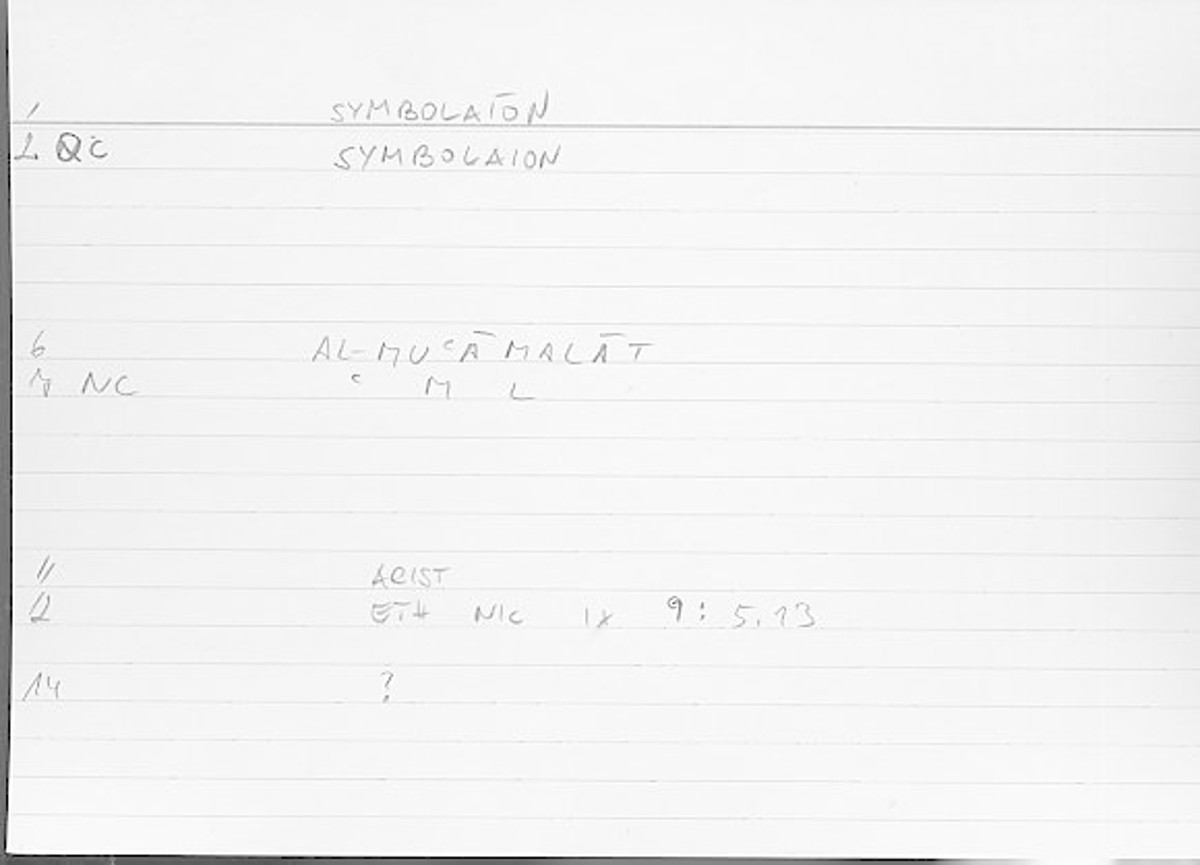 1 SYMBOLAĪON
2 QC SYMBOLAION
6 AL-MUᶜĀMALĀT
7 NC ᶜ M L
11 ARIST
12 ETH NIC IX 9: 5.13
14 ?